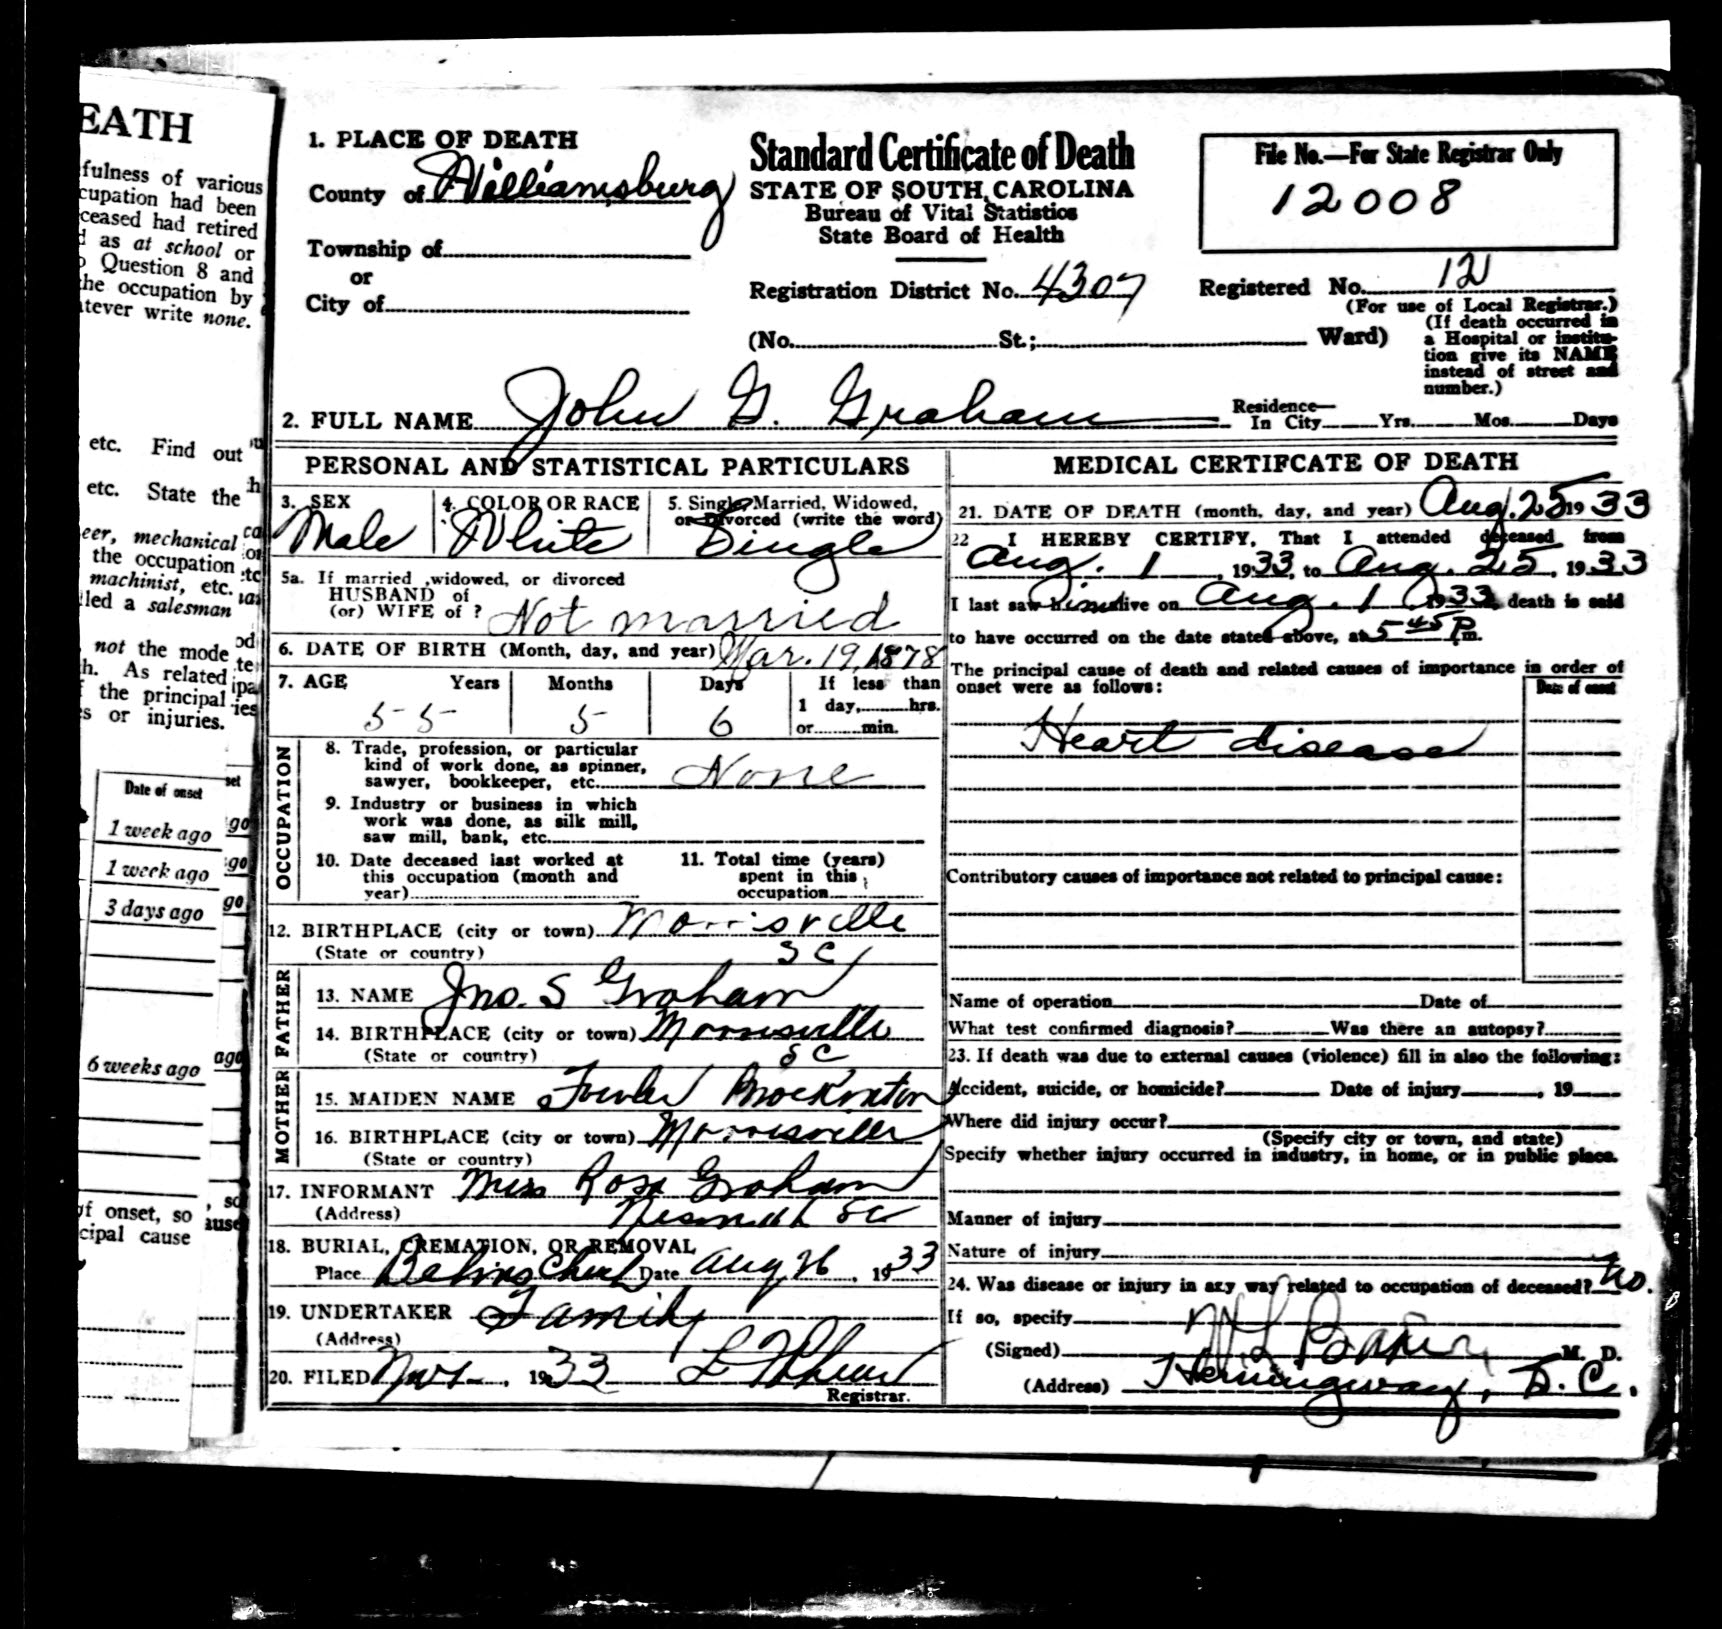 EATH
fulness of various
cupation had been
ceased had retired
as at school or
Question 8 and
he occupation by
tever write none.
etc. Find out
etc. State the
eer, mechanical
the occupation
machinist, etc.
led a salesman
not the mode
h. As related
the principal
s or injuries.
Date of onset
1 week ago
1 week ago
3 days ago
6 weeks ago
of onset, so
cipal cause
1. PLACE OF DEATH
County of Williamsburg
Township of
or
City of
Standard Certificate of Death
STATE OF SOUTH CAROLINA
Bureau of Vital Statistics
State Board of Health
Registration District No. 4307
(No. St.; Ward)
File No.—For State Registrar Only
12008
Registered No. 12
(For use of Local Registrar.)
(If death occurred in
a Hospital or institu-
tion give its NAME
instead of street and
number.)
2. FULL NAME John G. Graham
Residence—
In City Yrs. Mos. Days
PERSONAL AND STATISTICAL PARTICULARS
3. SEX
Male
4. COLOR OR RACE
White
5. Single, Married, Widowed,
or Divorced (write the word)
Single
5a. If married, widowed, or divorced
HUSBAND of
(or) WIFE of ? Not married
6. DATE OF BIRTH (Month, day, and year) Mar. 19, 1878
7. AGE Years Months Days If less than
1 day, hrs.
55 5 6 or min.
OCCUPATION
8. Trade, profession, or particular
kind of work done, as spinner,
sawyer, bookkeeper, etc. None
9. Industry or business in which
work was done, as silk mill,
saw mill, bank, etc.
10. Date deceased last worked at
this occupation (month and
year)
11. Total time (years)
spent in this
occupation
12. BIRTHPLACE (city or town) Morrisville
(State or country) S C
FATHER
13. NAME Jno. S Graham
14. BIRTHPLACE (city or town) Morrisville
(State or country) S C
MOTHER
15. MAIDEN NAME Brockinton
16. BIRTHPLACE (city or town) Morrisville
(State or country)
17. INFORMANT Miss Rosa Graham
(Address) Nesmith SC
18. BURIAL, CREMATION, OR REMOVAL
Place Date Aug 26, 1933
19. UNDERTAKER Family
(Address)
20. FILED 1933
Registrar.
MEDICAL CERTIFCATE OF DEATH
21. DATE OF DEATH (month, day, and year) Aug. 25 1933
22 I HEREBY CERTIFY, That I attended deceased from
Aug. 1, 1933, to Aug. 25, 1933
I last saw him alive on Aug. 1, 1933, death is said
to have occurred on the date stated above, at 5 45 P m.
The principal cause of death and related causes of importance in order of
onset were as follows:
Date of onset
Heart disease
Contributory causes of importance not related to principal cause:
Name of operation Date of
What test confirmed diagnosis? Was there an autopsy?
23. If death was due to external causes (violence) fill in also the following:
Accident, suicide, or homicide? Date of injury , 19
Where did injury occur?
(Specify city or town, and state)
Specify whether injury occurred in industry, in home, or in public place.
Manner of injury
Nature of injury
24. Was disease or injury in any way related to occupation of deceased? No.
If so, specify
(Signed) M. D.
(Address) Hemingway, S.C.